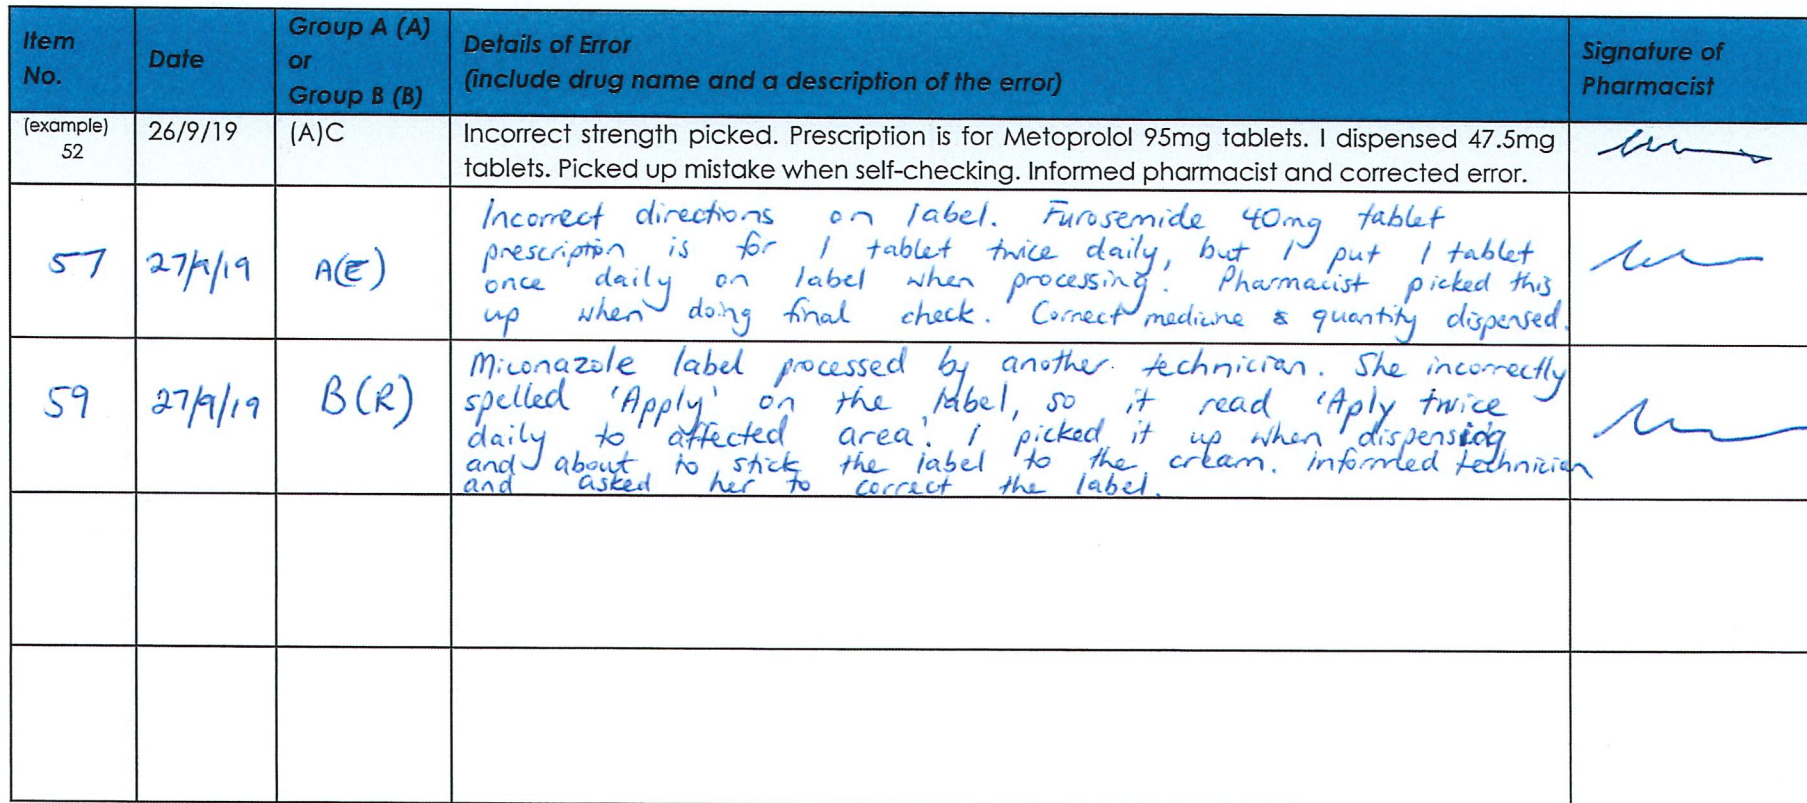 Item No.
Date
Group A (A) or Group B (B)
Details of Error
(include drug name and a description of the error)
Signature of Pharmacist
(example) 52
26/9/19
(A)C
Incorrect strength picked. Prescription is for Metoprolol 95mg tablets. I dispensed 47.5mg
tablets. Picked up mistake when self-checking. Informed pharmacist and corrected error.
57
27/9/19
A(E)
Incorrect directions on label. Furosemide 40mg tablet
prescription is for 1 tablet twice daily, but I put 1 tablet
once daily on label when processing. Pharmacist picked this
up when doing final check. Correct medicine & quantity dispensed.
59
27/9/19
B(R)
Miconazole label processed by another technician. She incorrectly
spelled 'Apply' on the label, so it read 'Aply twice
daily to affected area'. I picked it up when dispensing
and about to stick the label to the cream. informed technician
and asked her to correct the label.